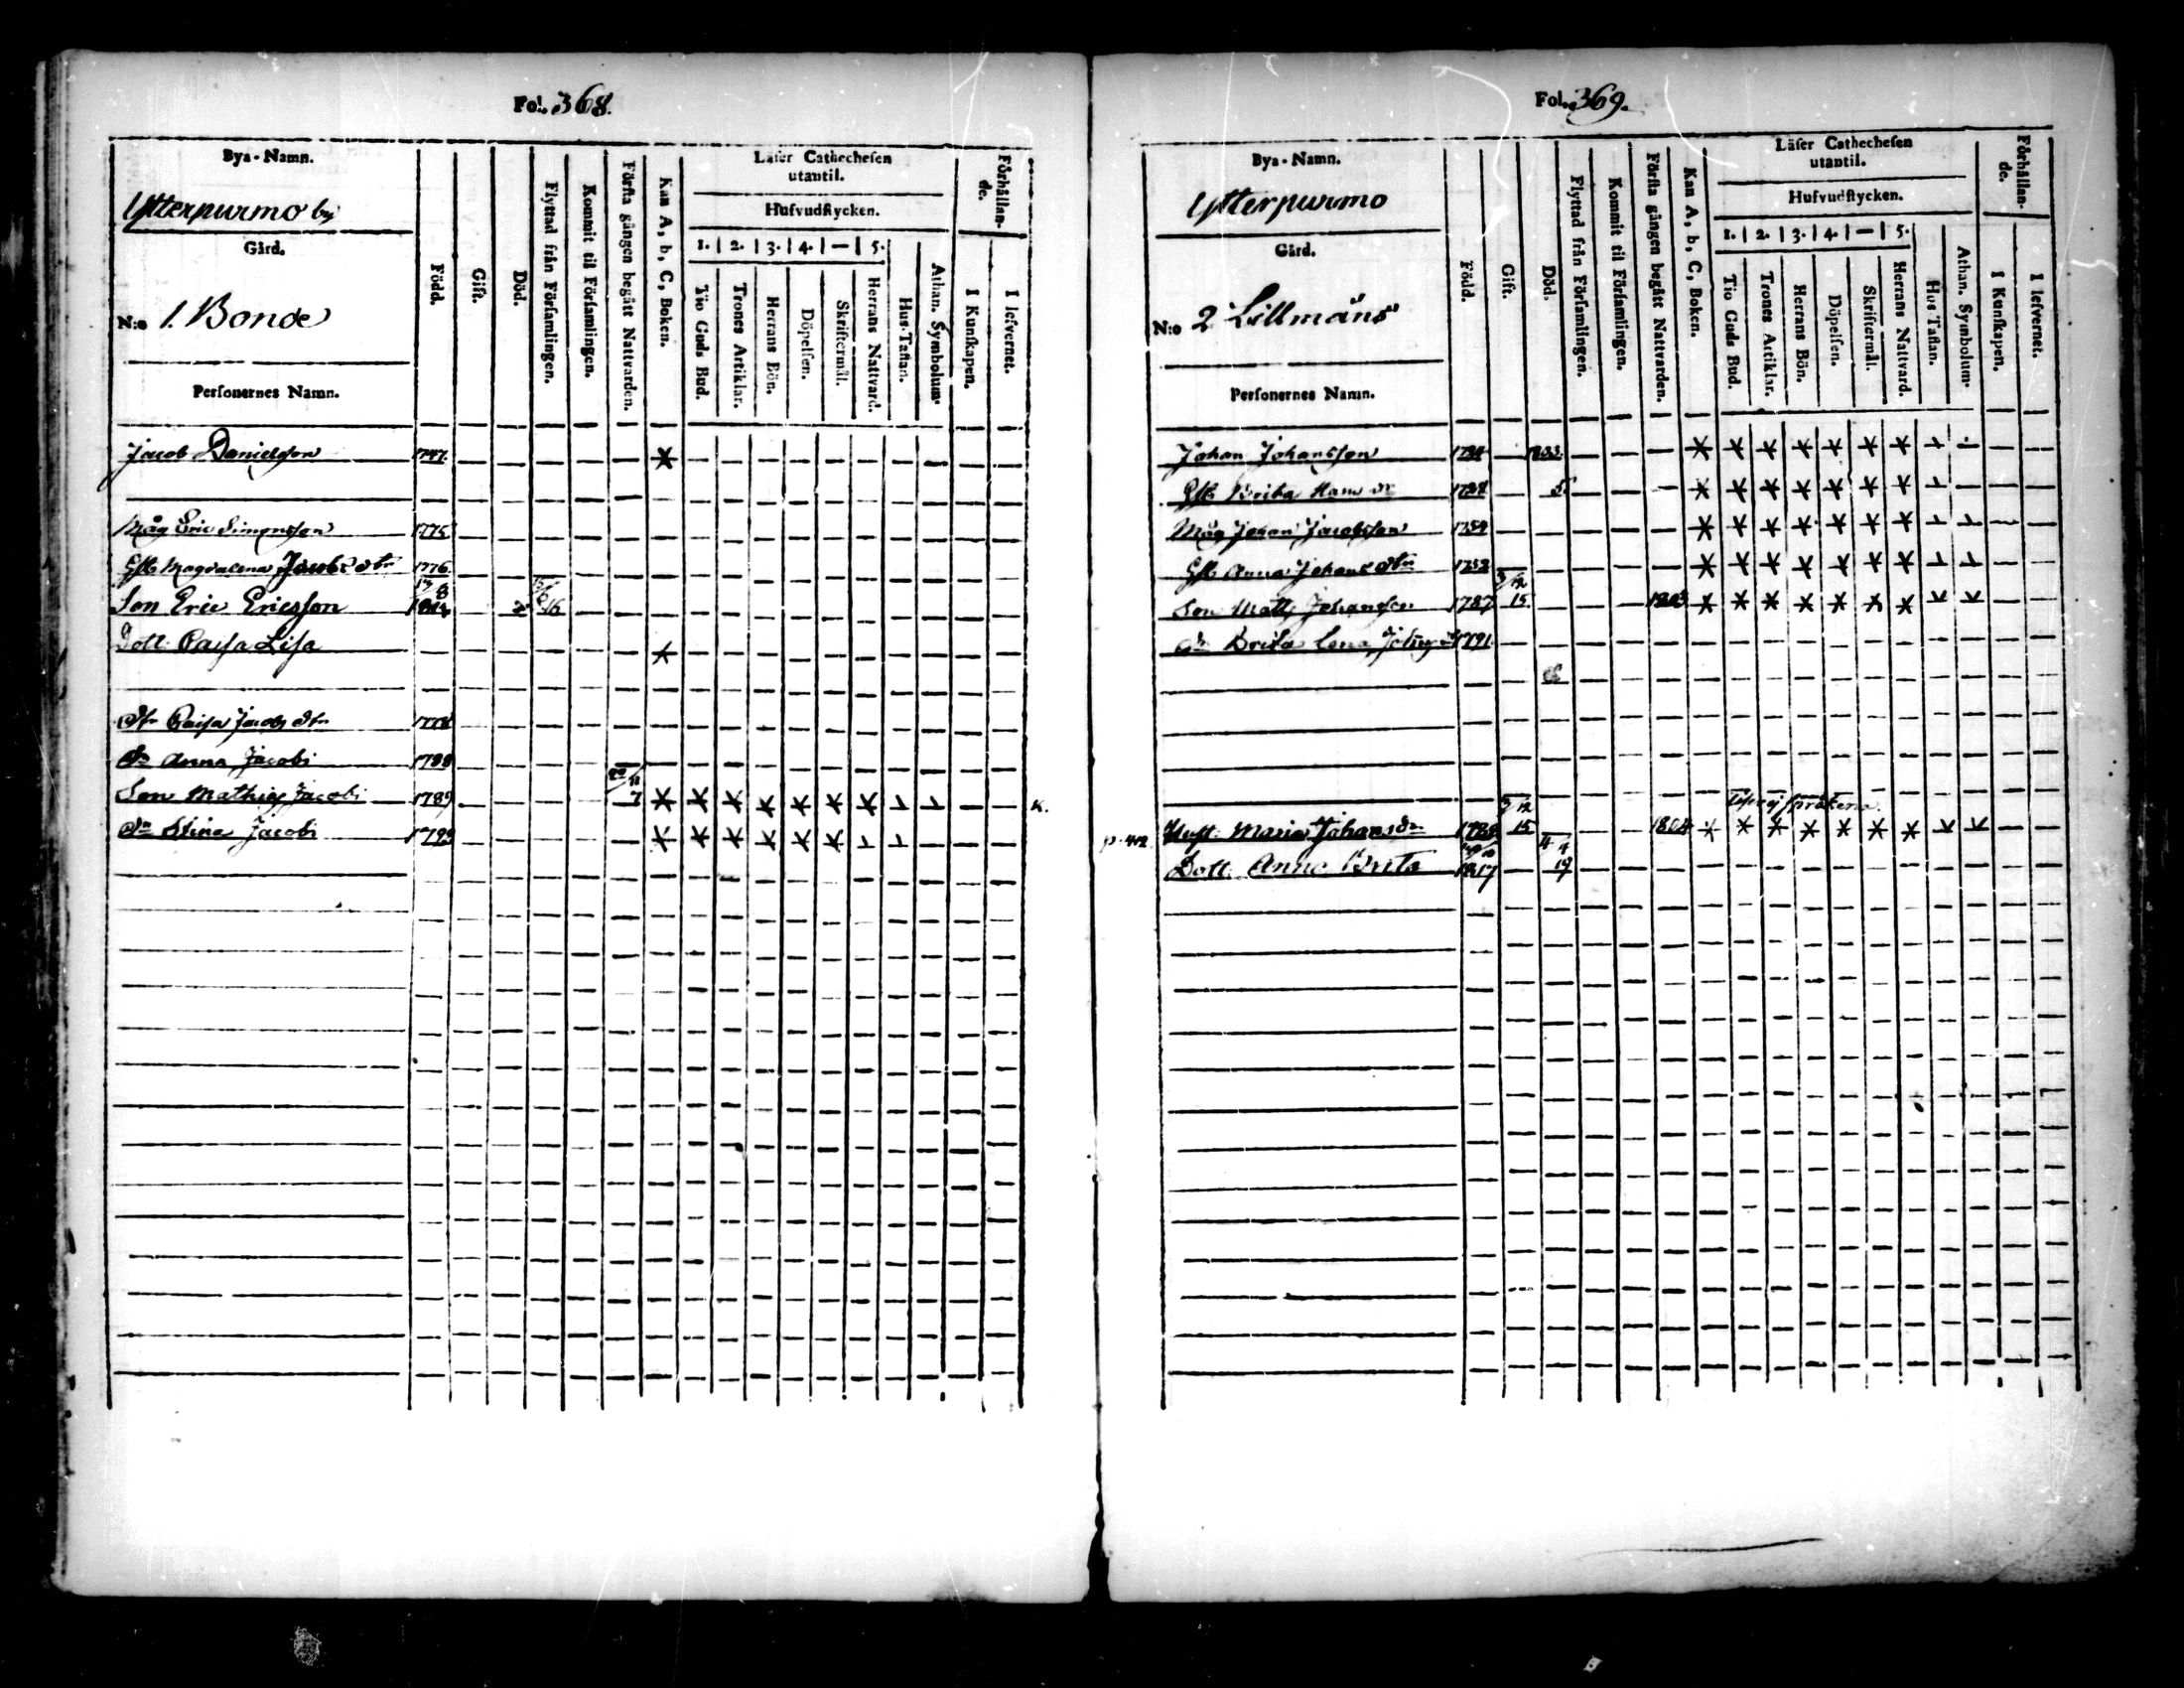 Fol. 368.
Bya-Namn.
Ytterpurmo by
Gård.
N:o 1. Bonde
Personernes Namn.
Född.
Gift.
Död.
Flyttad från Församlingen.
Kommit til Församlingen.
Första gången begått Nattvarden.
Kan A, b, C, Boken.
Läser Cathechesen utantil.
Hufvudstycken.
1. 2. 3. 4. — 5.
Tio Guds Bud.
Trones Artiklar.
Herrans Bön.
Döpelsen.
Skriftermål.
Herrans Nattvard.
Hus-Taflan.
Athan. Symbolum.
Förhållande.
I Kunskapen.
I lefvernet.
Jacob Danielsson 1747
Måg Eric Simonsson 1775
Hst. Magdalena Jacobs dtr 1776
Son Eric Ericsson 16
Dott. Caisa Lisa
Dtr Caisa Jacobs dtr
Dr Anna Jacobi 1788
Son Mathias Jacobi 1789 7 K.
Dr Stina Jacobi 1793
Fol. 369.
Bya-Namn.
Ytterpurmo
Gård.
N:o 2 Lillmåns
Personernes Namn.
Född.
Gift.
Död.
Flyttad från Församlingen.
Kommit til Församlingen.
Första gången begått Nattvarden.
Kan A, b, C, Boken.
Läser Cathechesen utantil.
Hufvudstycken.
1. 2. 3. 4. — 5.
Tio Guds Bud.
Trones Artiklar.
Herrans Bön.
Döpelsen.
Skriftermål.
Herrans Nattvard.
Hus Taflan.
Athan. Symbolum.
Förhållande.
I Kunskapen.
I lefvernet.
Johan Johansson
Hst. Brita Hans dr
Måg Johan Jacobsson
Hst. Anna Johans dtr
Son Matts Johansson 1787 3/12 15 1803
Dr Brita Lena 1791
p. 412 Hust. Maria Johans dr 3/12 15 1804
Dott. Anna Brita 1817 4/4 19